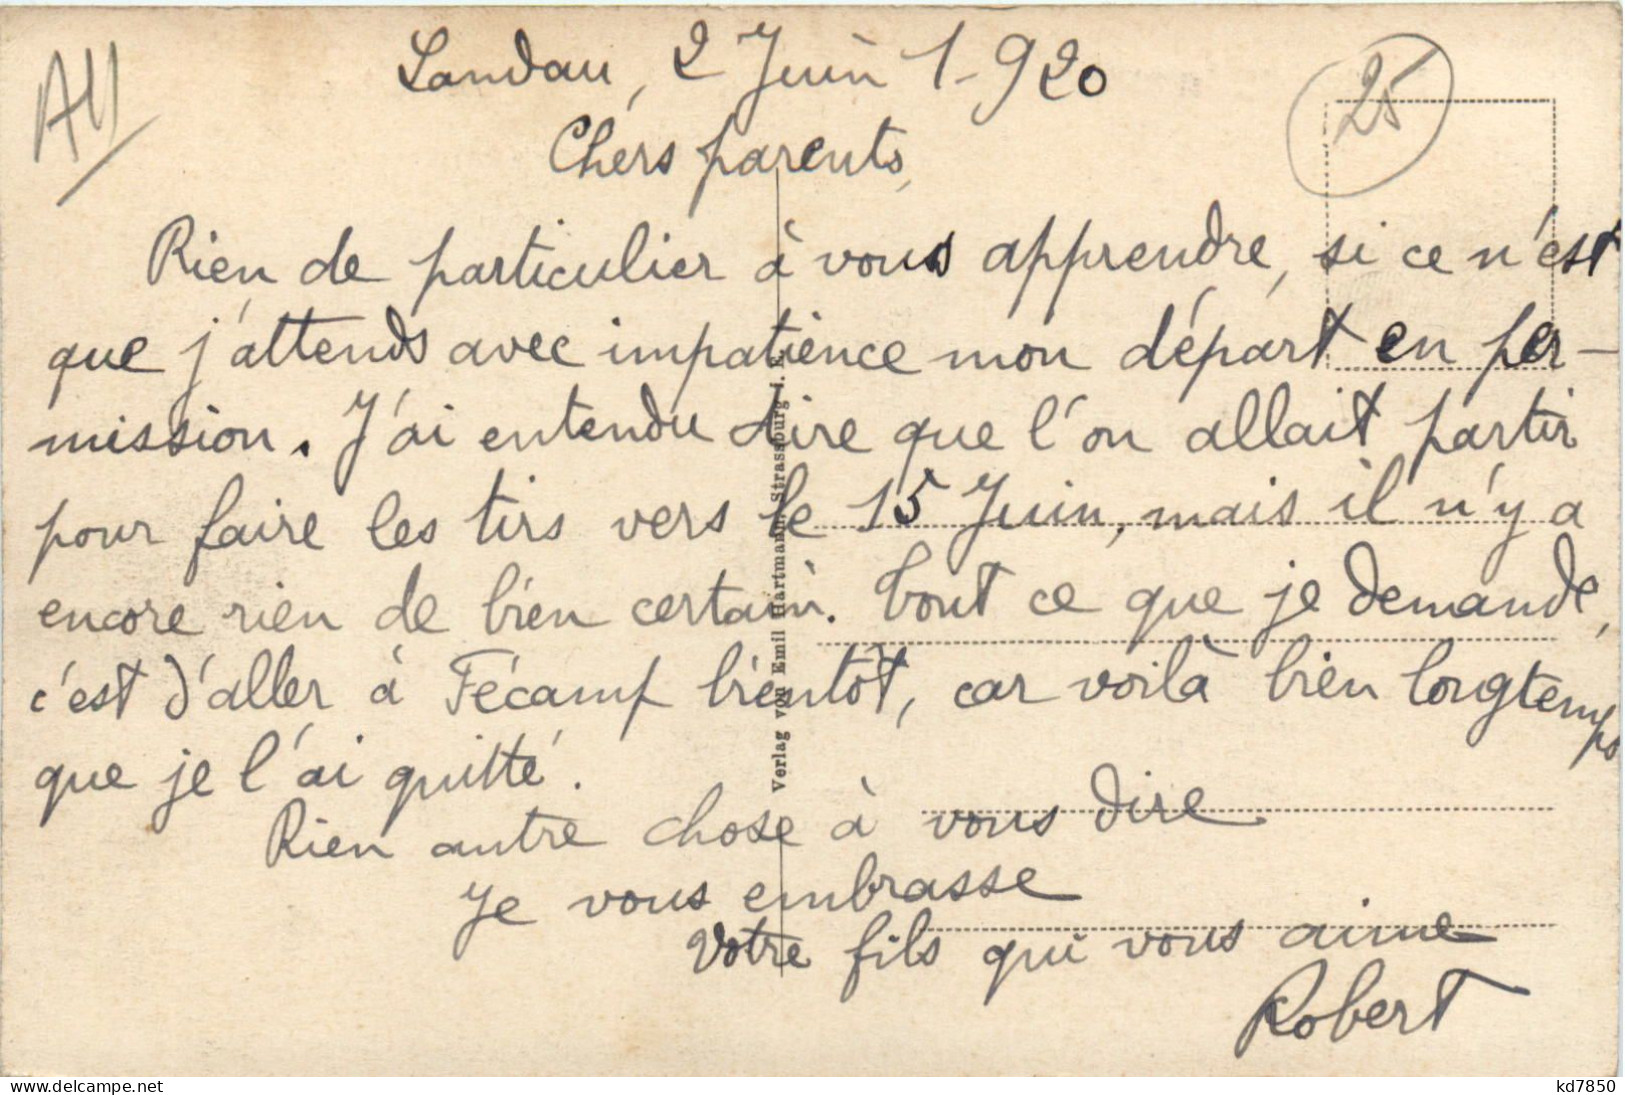 All
25
Landau, 2 Juin 1-920
Chers parents,
Rien de particulier à vous apprendre, si ce n'est
que j'attends avec impatience mon départ en per-
mission. J'ai entendu dire que l'on allait partir
pour faire les tirs vers le 15 Juin, mais il n'y a
encore rien de bien certain. Tout ce que je demande,
c'est d'aller à Fécamp bientôt, car voilà bien longtemps
que je l'ai quitté.
Rien autre chose à vous dire
Je vous embrasse
Votre fils qui vous aime
Robert
Verlag von Emil Hartmann, Strassburg i. E.
www.delcampe.net
kd7850